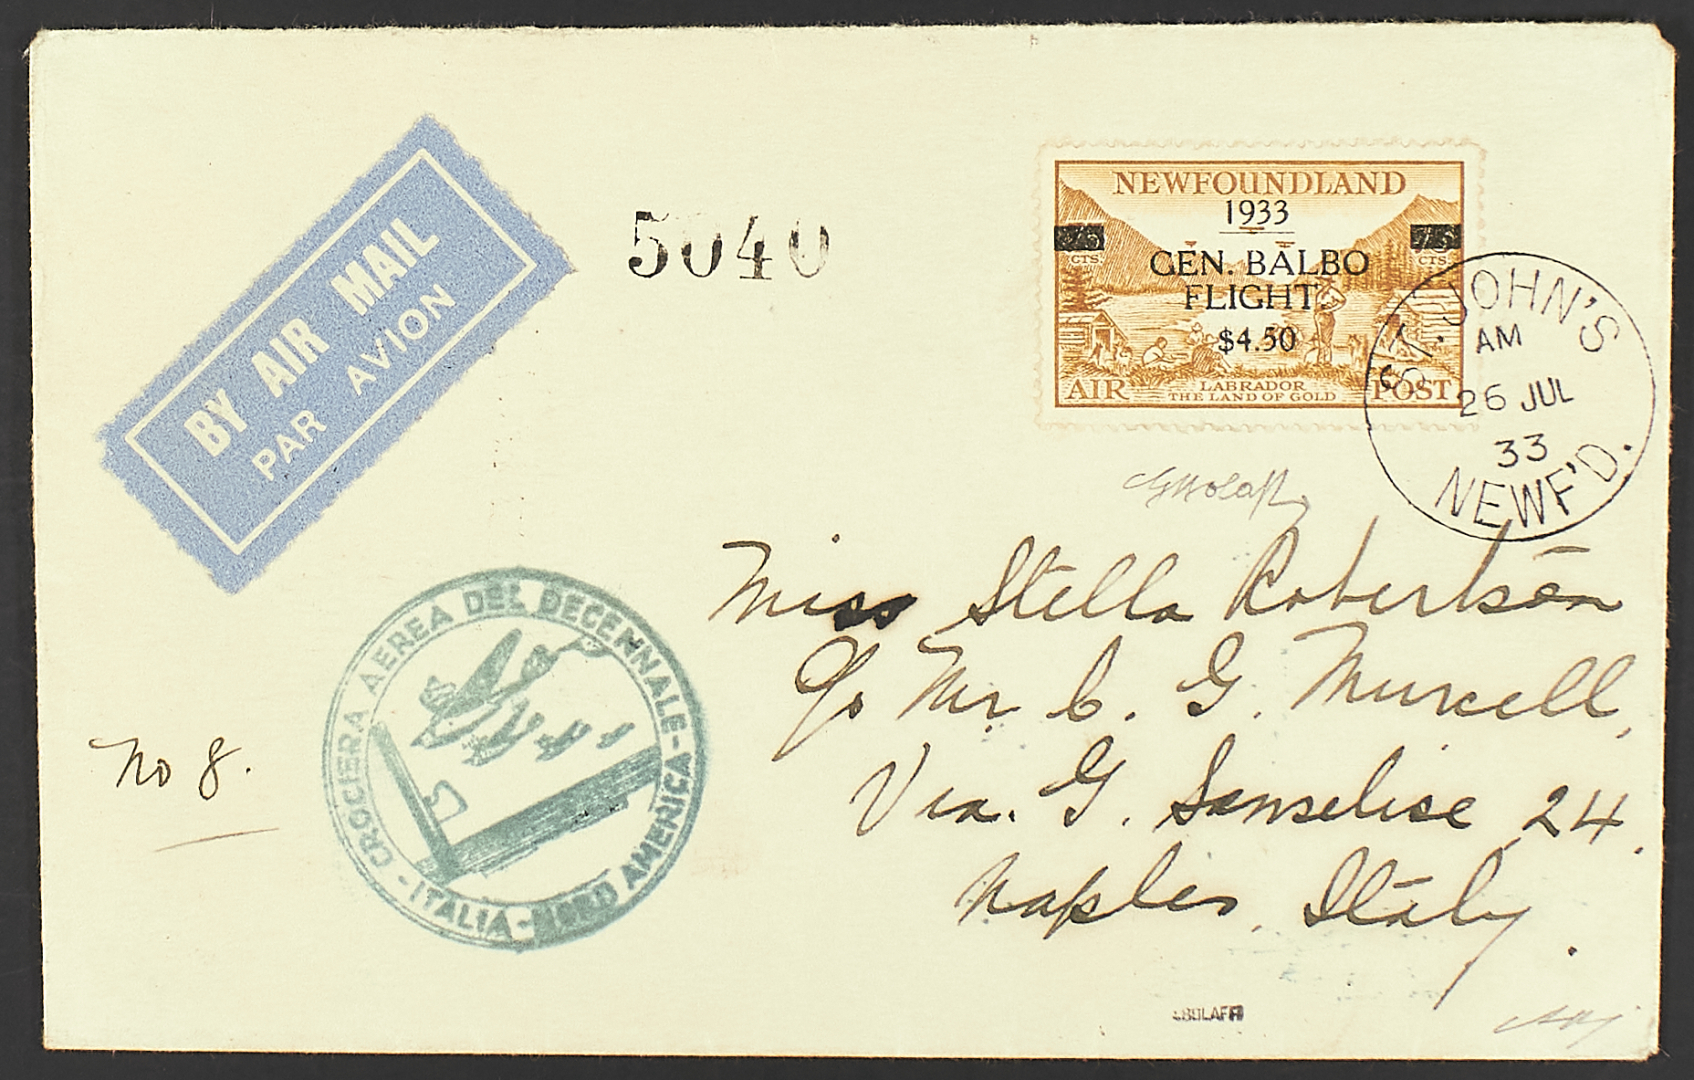 BY AIR MAIL
PAR AVION
5040
NEWFOUNDLAND
1933
75 75
CTS. CTS.
GEN. BALBO
FLIGHT.
$4.50
AIR POST
LABRADOR
THE LAND OF GOLD
ST. JOHN'S
AM
26 JUL
33
NEWF'D.
Miss Stella Robertson
c/o Mr C. G. Murcell,
Via. G. Sanselise 24.
Naples, Italy.
No 8.
CROCIERA AEREA DEL DECENNALE -
- ITALIA - NORD AMERICA